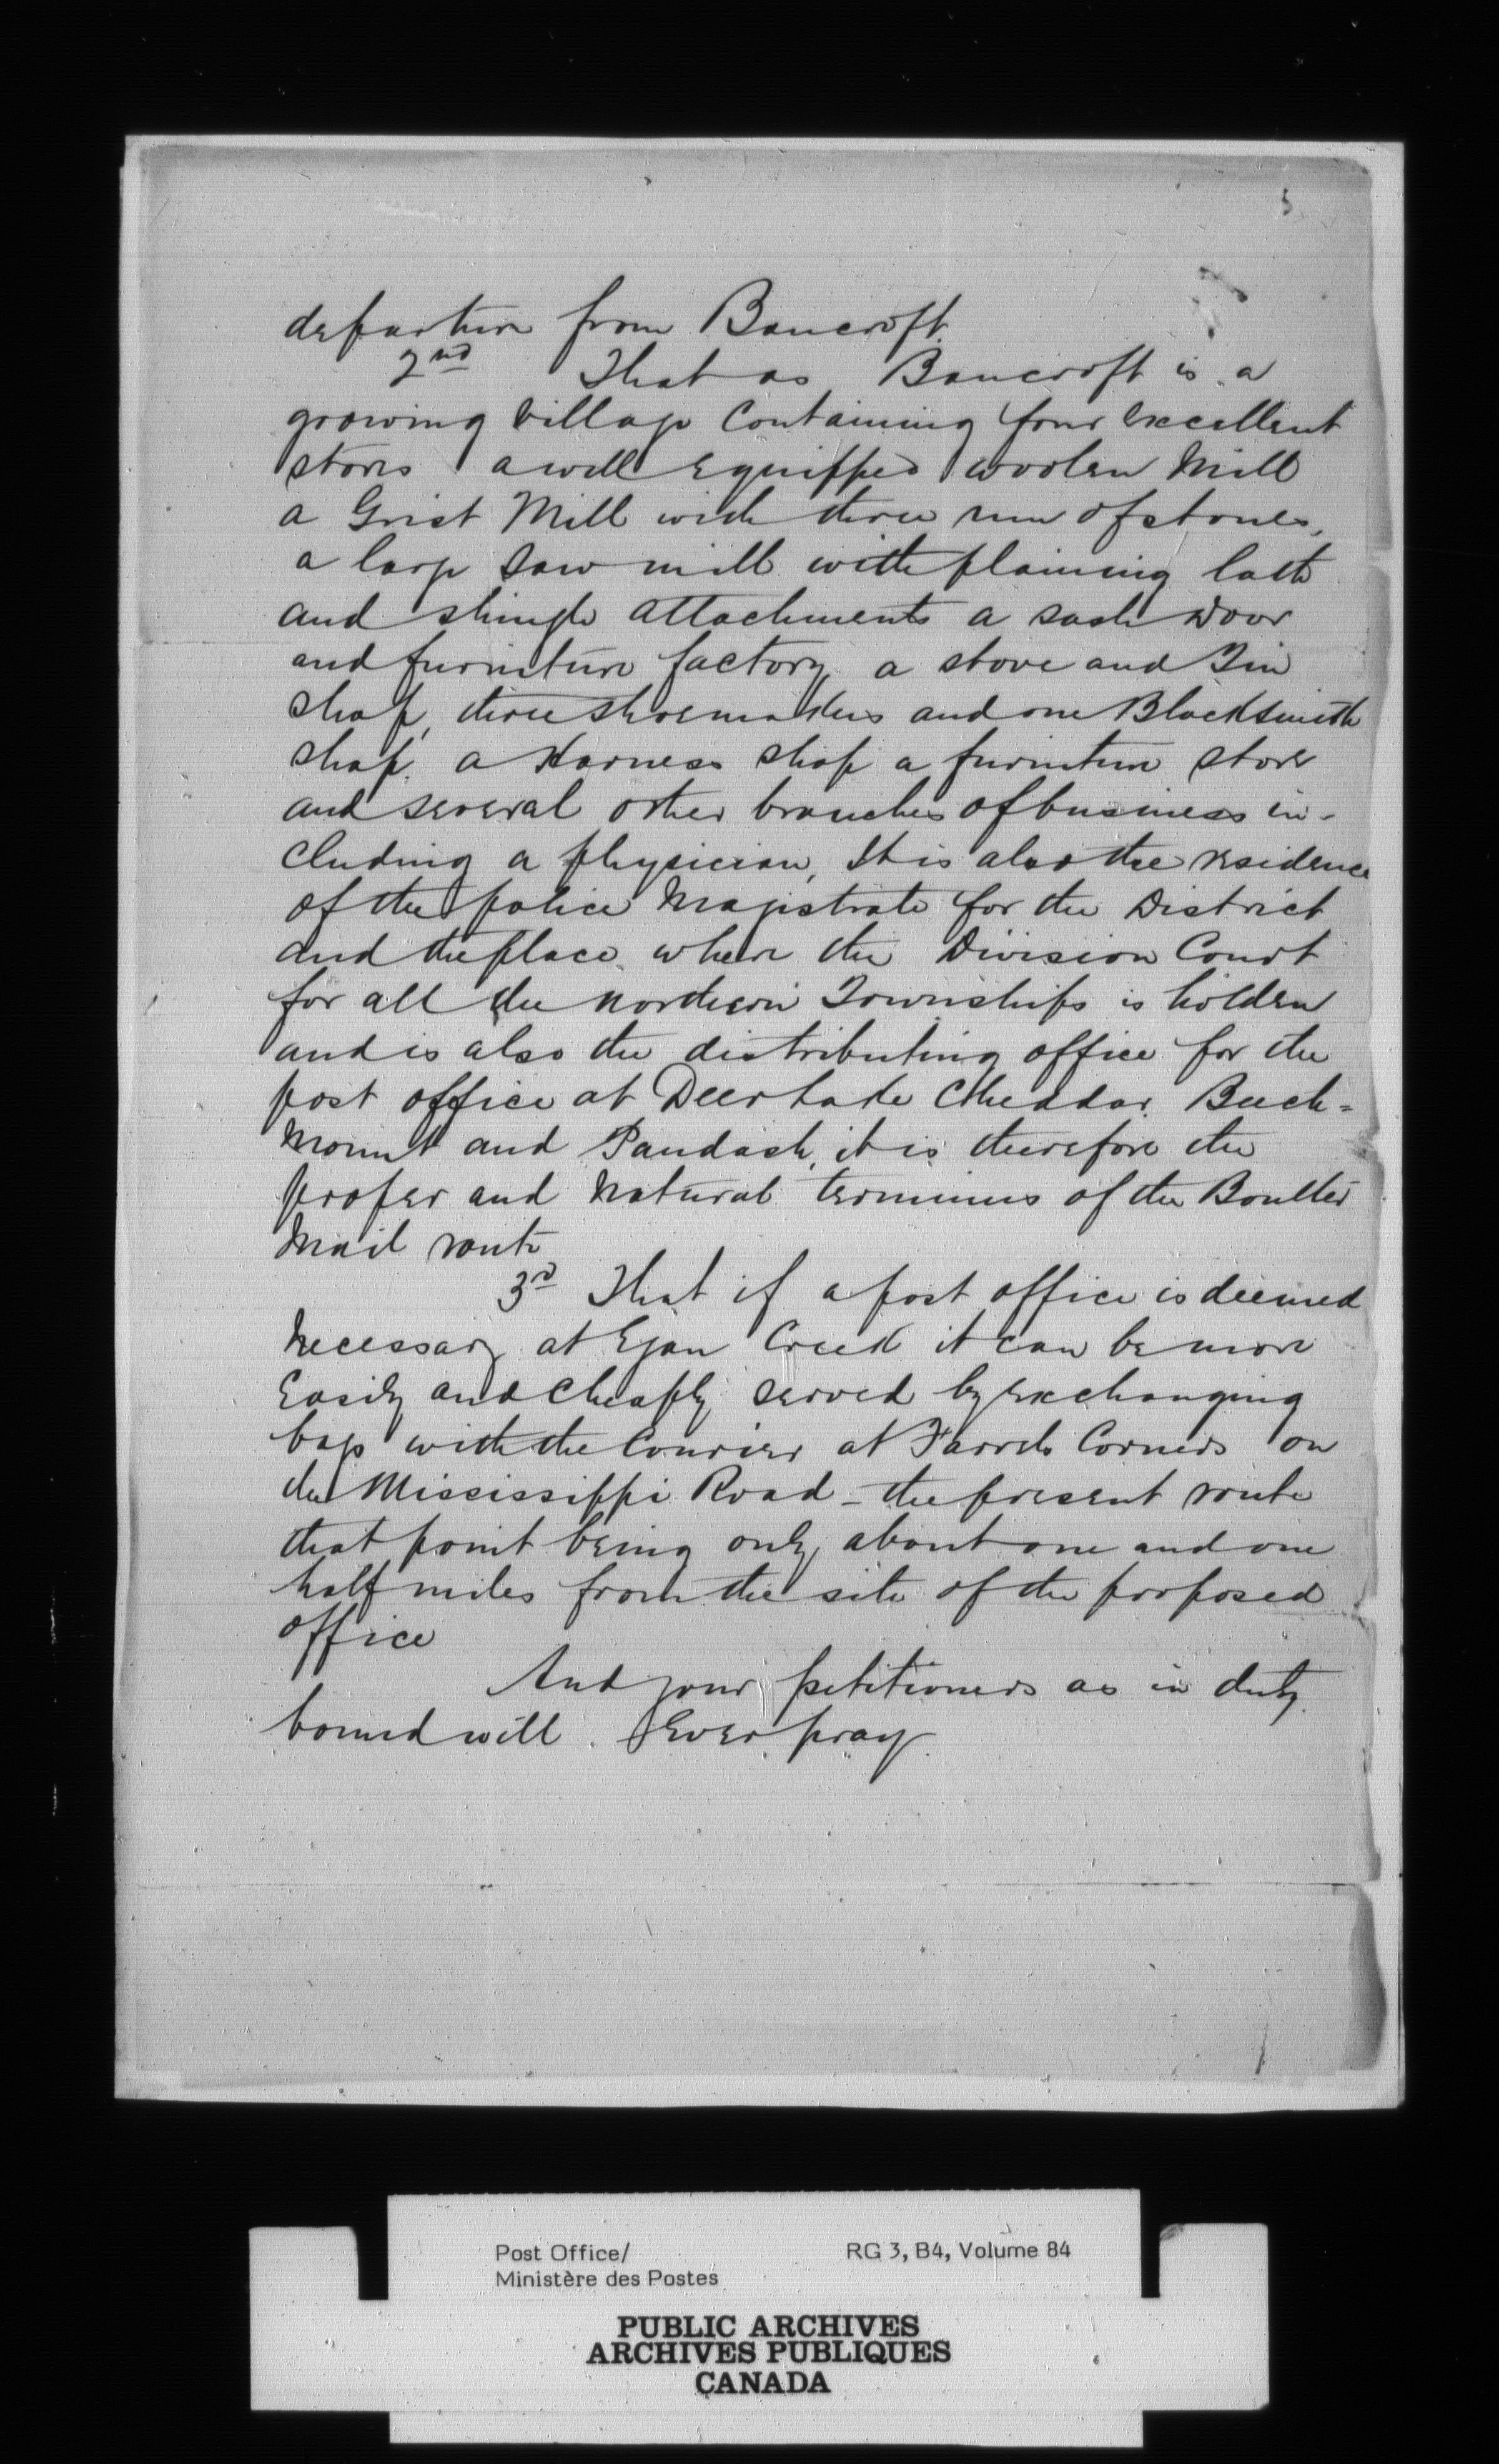 5
departure from Bancroft.
2nd That as Bancroft is a
growing village containing four excellent
stores a well equipped woolen Mill
a Grist Mill with three run of stones,
a large saw mill with plaining lath
and shingle attachments a sash Door
and furniture factory a stove and Tin
shop, three shoemakers and one Blacksmith
shop, a Harness shop a furniture store
and several other branches of business in-
cluding a physician, It is also the residence
of the police Magistrate for the District
and the place where the Division Court
for all the northern Townships is holden
and is also the distributing office for the
post office at Deer Lake Cheddar, Beech=
mount and Paudash, it is therefore the
proper and natural terminus of the Boulter
Mail route
3rd That if a post office is deemed
necessary at Egan Creek it can be more
Easily and Cheaply served by exchanging
bags with the Courier at Farrels Corners on
the Mississippi Road - the present route
that point being only about one and one
half miles from the site of the proposed
office
And your petitioners as in duty
bound will Ever pray.
Post Office/
Ministère des Postes
RG 3, B4, Volume 84
PUBLIC ARCHIVES
ARCHIVES PUBLIQUES
CANADA